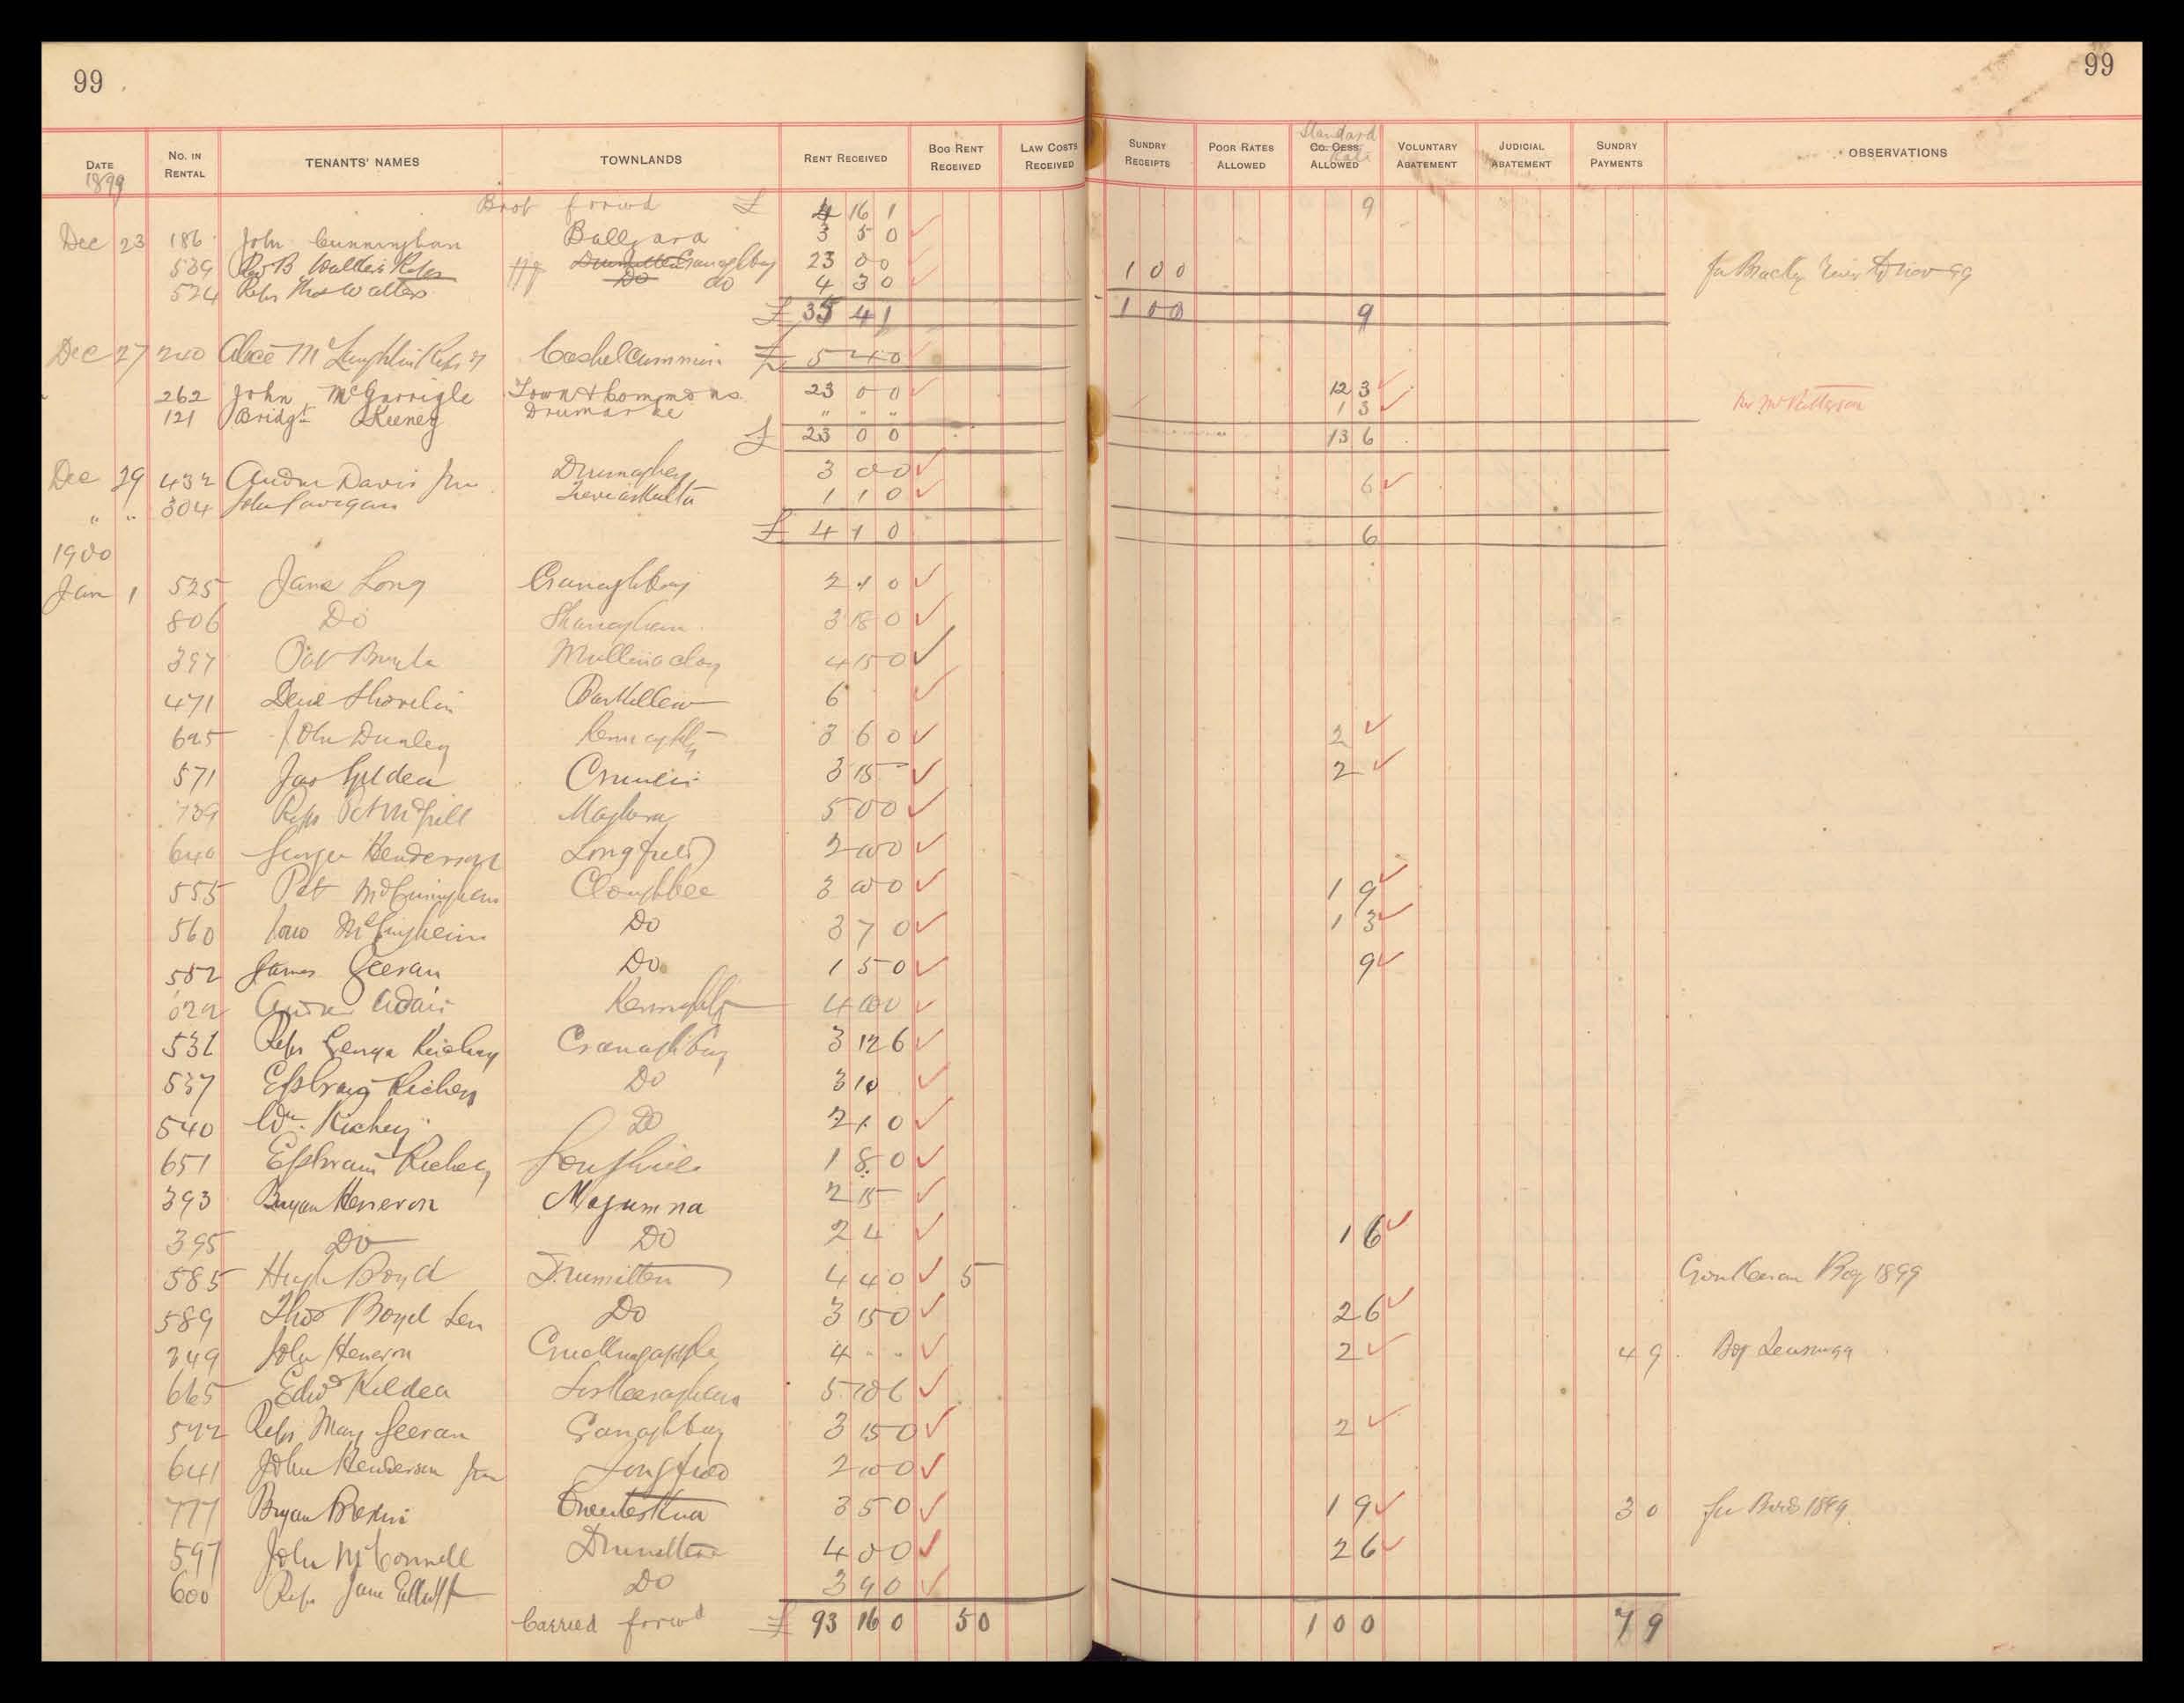 99
99
DATE 1899 NO. IN RENTAL TENANTS' NAMES TOWNLANDS RENT RECEIVED BOG RENT RECEIVED LAW COSTS RECEIVED SUNDRY RECEIPTS POOR RATES ALLOWED Standard Rate CO. CESS ALLOWED VOLUNTARY ABATEMENT JUDICIAL ABATEMENT SUNDRY PAYMENTS OBSERVATIONS
Brot forwd £ 4 16 1 9
Dec 23 186 John Cunningham 3 5 0
539 Rev B Walters Reps 23 0 0 1 0 0 Nov 99
524 Reps Thos Walters Do do 4 3 0
£ 35 4 1 1 0 0 9
Dec 27 240 Alice McLaughlin Reps of Cashelcummin £ 5 4 0
262 John McGarrigle Town & Commons 23 0 0 12 3 Mr Patterson
121 Bridgt Keeney Drumarke " " " 1 3
£ 23 0 0 13 6
Dec 29 432 Andw Davis Jnr Drumaghey 3 0 0 6
" " 304 John Gavigan 1 1 0
£ 4 1 0 6
1900
Jan 1 525 Jane Long Cranaghboy 2 1 0
806 Do Shanaghan 3 18 0
397 Pat Boyle Mullinacloy 4 15 0
471 Shovelin 6
695 John Dunley 3 6 0 2
571 Jas Gildea Crumlin 3 15 2
739 Reps Pat McGill Maghera 5 0 0
640 George Henderson Longfield 2 10 0
555 Pat McCunningham Cloughbee 3 10 0 1 9
560 Do 3 7 0 1 3
552 James Geeran Do 1 5 0 9
Andw Adair 4 10 0
Reps George Richey Cranaghboy 3 12 6
537 Ephraim Richey Do 3 10
540 Wm Richey Do 2 1 0
651 Ephraim Richey Loughhill 1 8 0
393 Bryan Heneron Meenmna 2 15
395 Do Do 2 4 1 6
585 Hugh Boyd Drumitten 4 4 0 5 Bog 1899
589 Thos Boyd Sen Do 3 15 0 2 6
349 John Heneron 4 " " 2 4 9 Bog
665 Edwd Kildea 5 10 6
Reps Mary Geeran Cranaghboy 3 15 0 2
641 John Henderson Jun Longfield 2 10 0
777 Bryan Breslin 3 5 0 1 9 3 0 for 1899
597 John McConnell Drumitten 4 0 0 2 6
600 Reps Jane Elliott Do 3 9 0
Carried forwd £ 93 16 0 5 0 1 0 0 7 9